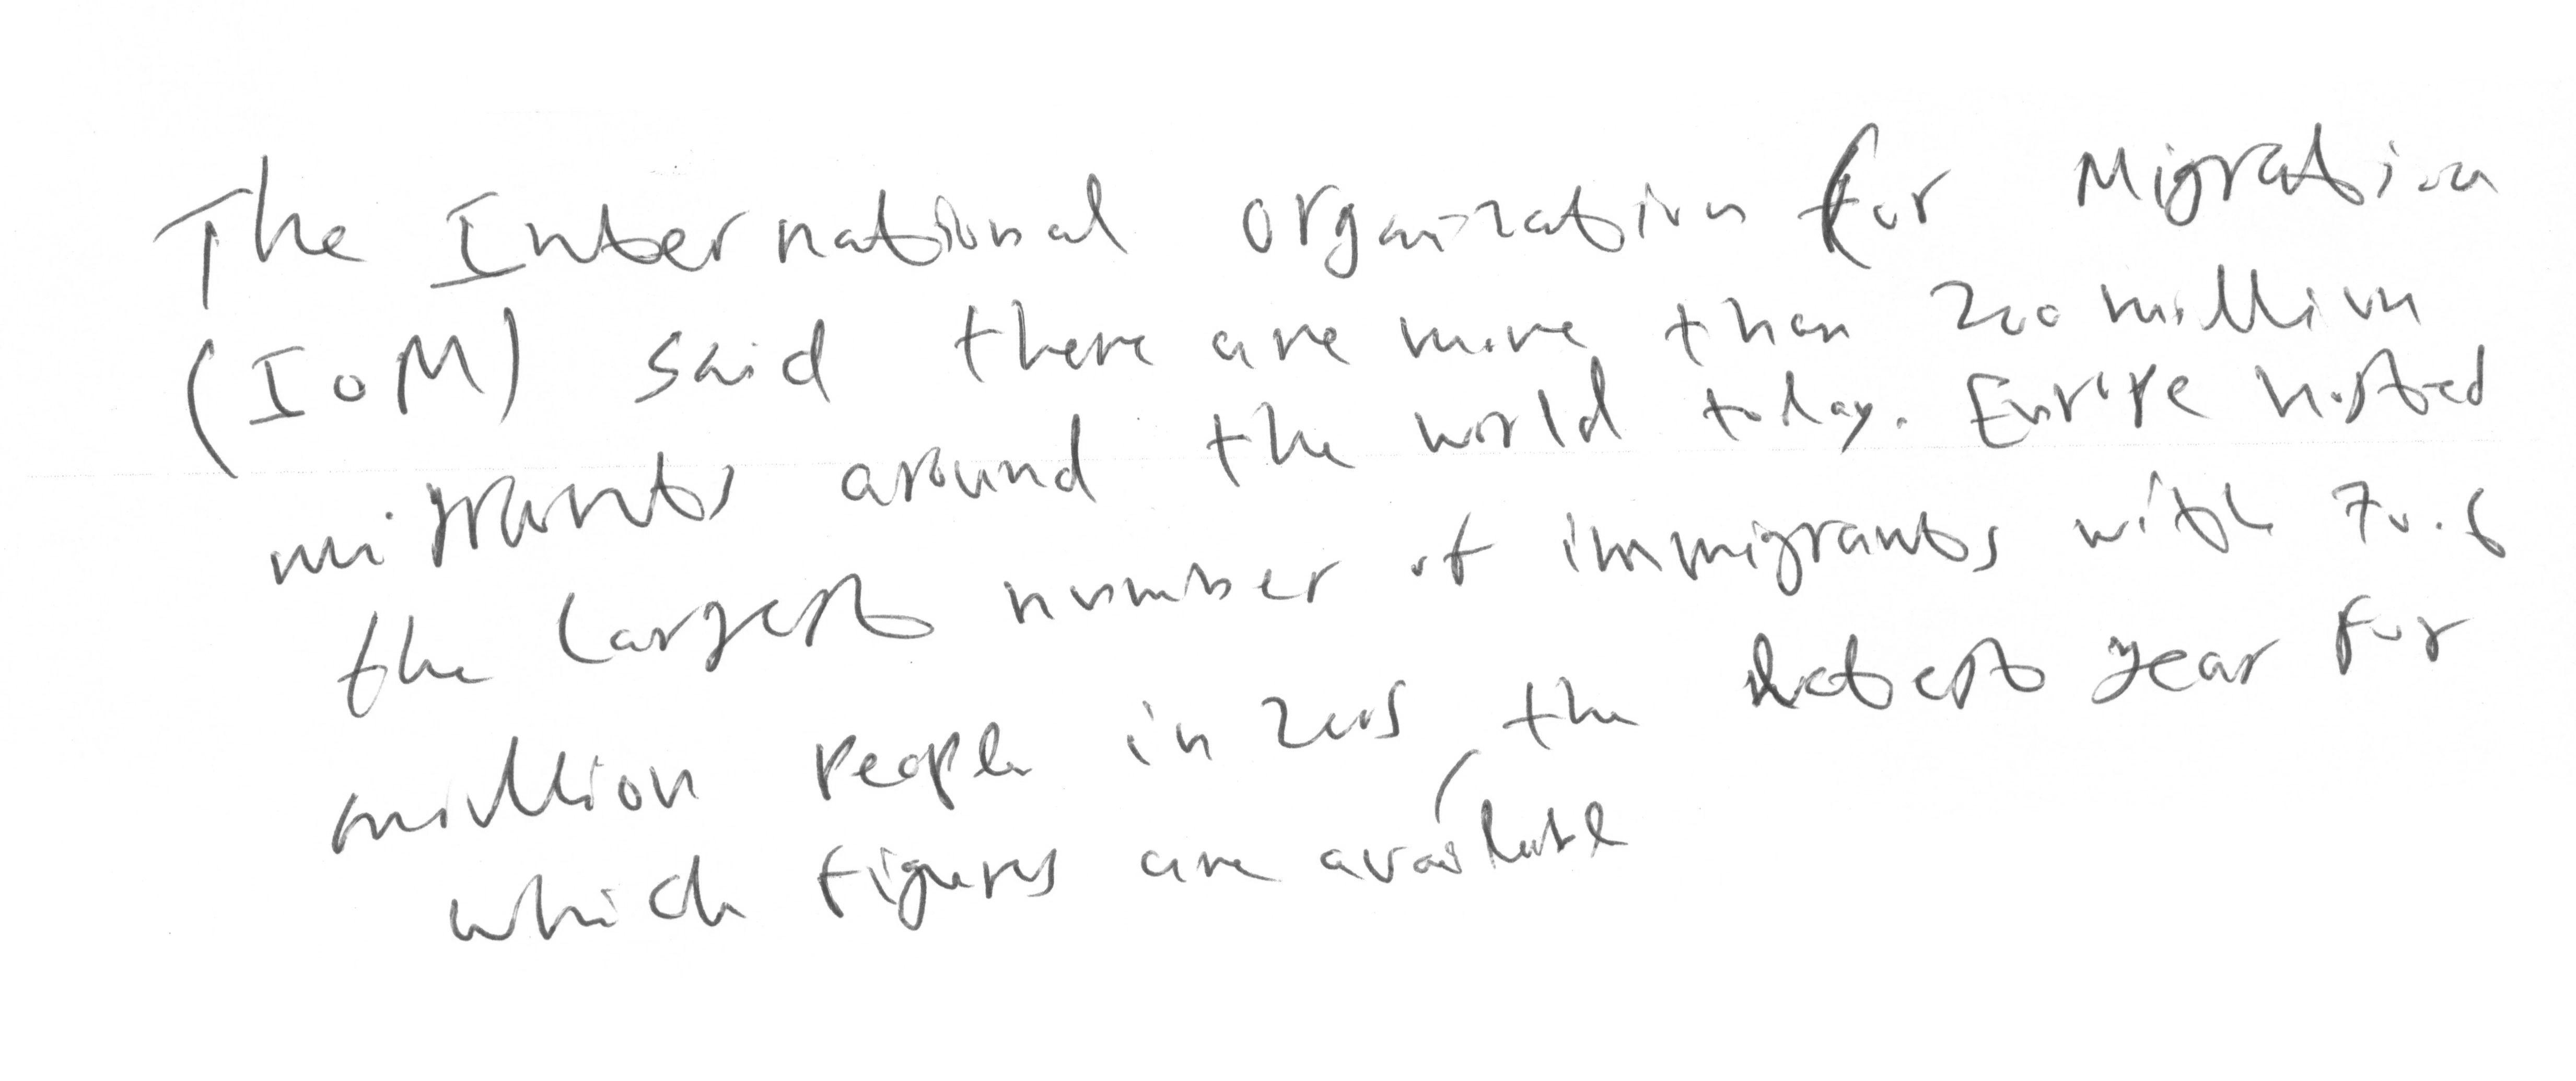 The International Organization for Migration
(IOM) said there are more than 200 million
migrants around the world today. Europe hosted
the largest number of immigrants with 70.6
million people in 2005, the latest year for
which figures are available